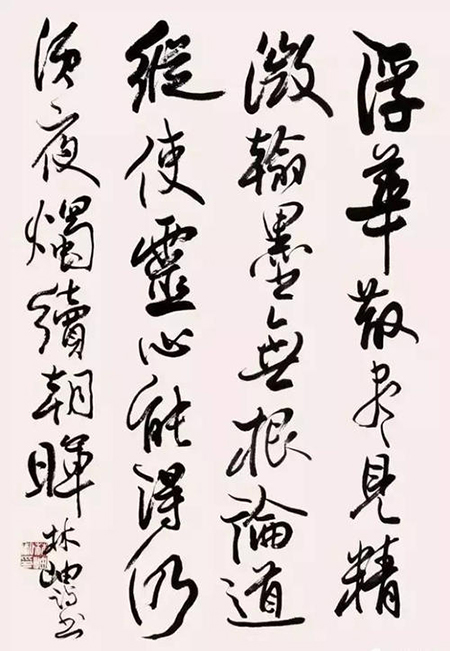 浮華散盡見精
微翰墨無根論道
縱使靈心能得仍
須夜燭續朝暉
林岫詩書